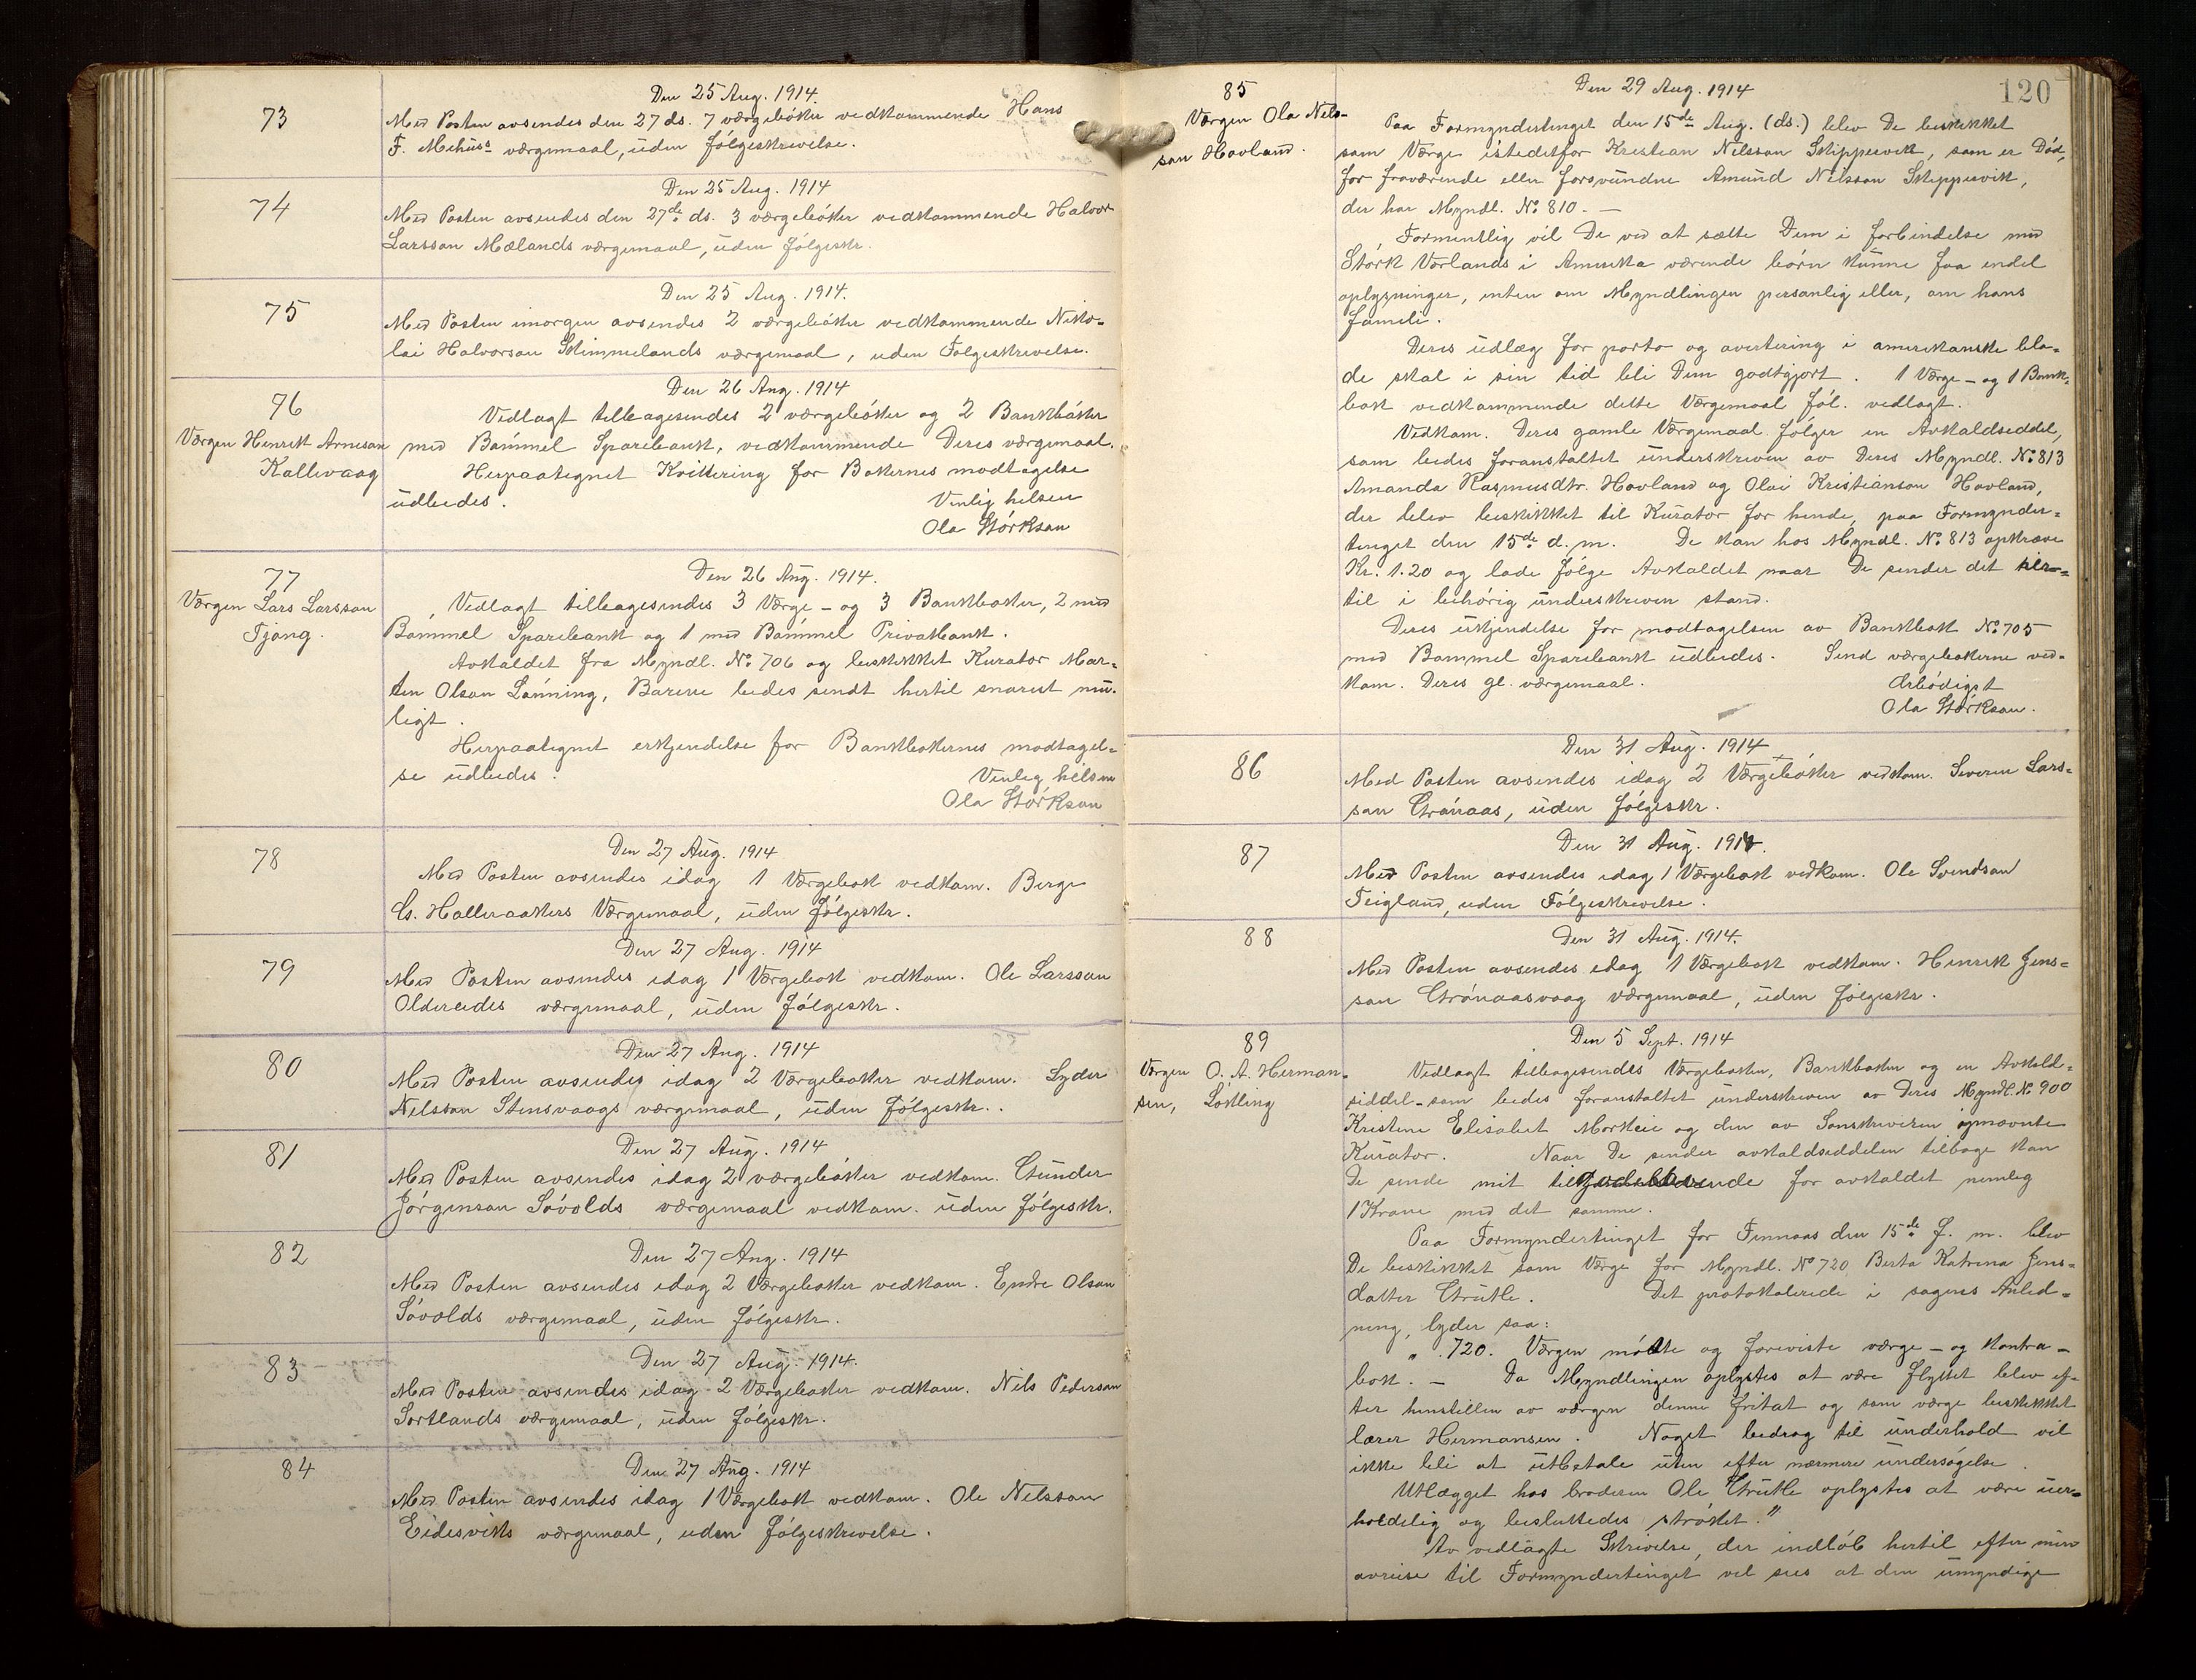 73
Den 25 Aug. 1914.
Med Posten avsendes den 27 ds. 7 værgebøker vedkommende Hans
F. Mehus's værgemaal, uden følgeskrivelse.
74
Den 25 Aug. 1914
Med Posten avsendes den 27de ds. 3 værgebøker vedkommende Halvor
Larsson Mælands værgemaal, uden følgeskr.
75
Den 25 Aug. 1914.
Med Posten imorgen avsendes 2 værgebøker vedkommende Niko-
lai Halvorson Skimmelands værgemaal, uden Følgeskrivelse.
76
Værgen Henrik Arneson
Kallevaag
Den 26 Aug. 1914
Vedlagt tilbagesendes 2 værgebøker og 2 Bankbøker
med Bømmel Sparebank, vedkommende Deres værgemaal.
Herpaategnet Kvittering for Bøkernes modtagelse
udbedes.
Venlig hilsen
Ola Størkson
77
Værgen Lars Larsson
Tjong.
Den 26 Aug. 1914.
Vedlagt tilbagesendes 3 Værge- og 3 Bankbøker, 2 med
Bømmel Sparebank og 1 med Bømmel Privatbank.
Avkaldet fra Myndl. No. 706 og beskikket Kurator Mar-
tin Olson Lønning, Barene bedes sendt hertil snarest mu-
ligt.
Herpaategnet erkjendelse for Bankbøkernes modtagel-
se udbedes.
Venleg helsen
Ola Størkson
78
Den 27 Aug. 1914
Med Posten avsendes idag 1 Værgebok vedkom. Berge
G. Halleraakers Værgemaal, uden følgeskr.
79
Den 27 Aug. 1914
Med Posten avsendes idag 1 Værgebok vedkom. Ole Larsson
Oldereides værgemaal, uden følgeskr.
80
Den 27 Aug. 1914
Med Posten avsendes idag 2 Værgebøker vedkom. Lyder
Nelsson Stensvaags værgemaal, uden følgeskr.
81
Den 27 Aug. 1914
Med Posten avsendes idag 2 værgebøker vedkom. Gunder
Jørgenson Søvolds værgemaal vedkom. uden følgeskr.
82
Den 27 Aug. 1914
Med Posten avsendes idag 2 Værgebøker vedkom. Endre Olson
Søvolds værgemaal, uden følgeskr.
83
Den 27 Aug. 1914.
Med Posten avsendes idag 2 Værgebøker vedkom. Nels Pederson
Sortlands værgemaal, uden følgeskr.
84
Den 27 Aug. 1914
Med Posten avsendes idag 1 Værgebok vedkom. Ole Nelsson
Eidesviks værgemaal, uden følgeskrivelse.
120
85
Værgen Ola Nels-
son Hovland.
Den 29 Aug. 1914
Paa Formyndertinget den 15de Aug. (ds.) blev De beskikket
som Værge istedetfor Kristian Nelsson Skippervik, som er Død,
for fraværende eller forsvundne Amund Nelsson Skippevik,
der har Myndl. No. 810. —
Formentlig vil De ved at sætte Dem i forbindelse med
Størk Vorlands i Amerika værende børn kunne faa endel
oplysninger, enten om Myndlingen personlig eller, om hans
famili.
Deres udlæg for porto og avertering i amerikanske bla-
de skal i sin tid bli Dem godtgjort. 1 Værge- og 1 Bank-
bok vedkommende dette Værgemaal føl. vedlagt.
Vedkom. Deres gamle Værgemaal følger en Avkaldseddel,
som bedes foranstaltet underskreven av Deres Myndl. No. 813
Amanda Rasmusdtr. Hovland og Olai Kristianson Hovland,
der blev beskikket til Kurator for hende, paa Formynder-
tinget den 15de d. m. De kan hos Myndl. No. 813 opkræve
Kr. 1.20 og lade følge Avkaldet naar De sender det her-
til i behørig underskreven stand.
Deres erkjendelse for modtagelsen av Bankbok No. 705
med Bømmel Sparebank udbedes. Send værgebøkerne ved-
kom. Deres gl. værgemaal.
Ærbødigst
Ola Størkson.
86
Den 31 Aug. 1914
Med Posten avsendes idag 2 Værgebøker vedkom. Severin Lars-
son Grønaas, uden følgeskr.
87
Den 31 Aug. 1914.
Med Posten avsendes idag 1 Værgebok vedkom. Ole Svendson
Teigland, uden Følgeskrivelse.
88
Den 31 Aug. 1914.
Med Posten avsendes idag 1 Værgebok vedkom. Henrik Jens-
son Grønaasvaag værgemaal, uden følgeskr.
89
Værgen O. A. Herman-
sen, Løkling
Den 5 Sept. 1914
Vedlagt tilbagesendes Værgeboken, Bankboken og en Avkald-
seddel - som bedes foranstaltet underskreven av Deres Myndl. No. 900
Kristine Elisabet Morkeie og den av Sorenskriveren opnævnte
Kurator. Naar De sender avkaldseddelen tilbage kan
De sende mit tilgodehavende for avkaldet nemleg
1 Krone med det samme.
Paa Formyndertinget for Finnaas den 15de f. m. blev
De beskikket som Værge for Myndl. No 720 Berta Katrina Jens-
datter Grutle. Det protokolerede i sagens Anled-
ning, lyder saa:
„ 720. Værgen mødte og foreviste værge- og kontra-
bok. - Da Myndlingen oplystes at være flyttet blev ef-
ter henstillen av værgen denne fritat og som værge beskikket
lærer Hermansen. Noget bedrag til underhold vil
ikke bli at utbetale uten efter nærmere undersøgelse.
Utlægget hos broderen Ole Grutle oplystes at være uer-
holdelig og besluttedes strøket."
Av vedlagte Skrivelse, der indløb hertil efter min
avreise til Formyndertinget vil sees at den umyndige